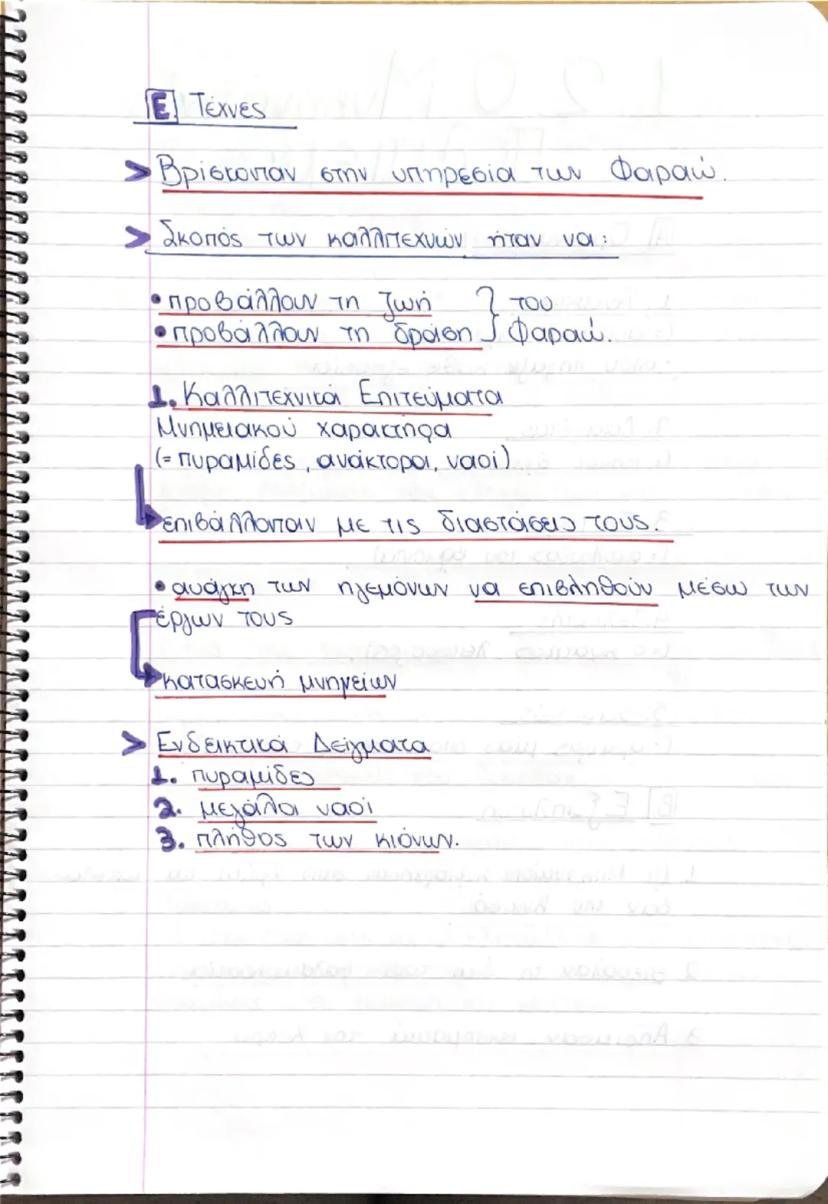 Ε Τέχνες
> Βρίσκονταν στην υπηρεσία των Φαραώ.
> Σκοπός των καλλιτεχνών ήταν να:
• προβάλλουν τη ζωή } του
• προβάλλουν τη δράση } Φαραώ.
1. Καλλιτεχνικά Επιτεύματα
Μνημειακού χαρακτήρα
(= πυραμίδες, ανάκτοροι, ναοί)
επιβάλλονταν με τις διαστάσεις τους.
• ανάγκη των ηγεμόνων να επιβληθούν μέσω των
έργων τους
κατασκευή μνημείων
> Ενδεικτικά Δείγματα
1. πυραμίδες
2. μεγάλοι ναοί
3. πλήθος των κιόνων.